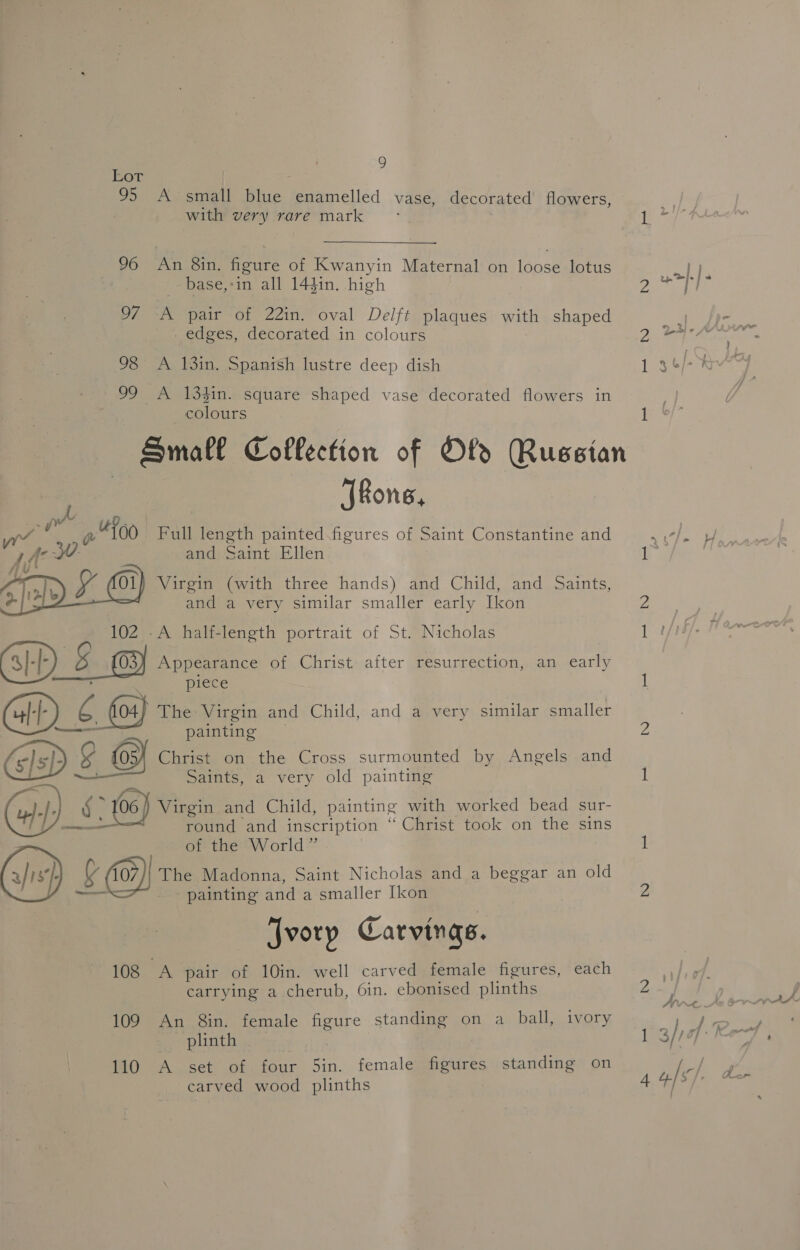 9
Lot
95 A small blue enamelled vase, decorated flowers,
with very rare mark 1
96 An 8in. figure of Kwanyin Maternal on loose lotus
base, in all 14½in. high 2
97 A pair of 22in. oval Delft plaques with shaped
edges, decorated in colours 2
98 A 13in. Spanish lustre deep dish 1
99 A 13½in. square shaped vase decorated flowers in
colours 1
Small Collection of Old Russian
Ikons.
100 Full length painted figures of Saint Constantine and
and Saint Ellen 1
101 Virgin (with three hands) and Child, and Saints,
and a very similar smaller early Ikon 2
102 A half-length portrait of St. Nicholas 1
103 Appearance of Christ after resurrection, an early
piece 1
104 The Virgin and Child, and a very similar smaller
painting 2
105 Christ on the Cross surmounted by Angels and
Saints, a very old painting 1
106 Virgin and Child, painting with worked bead sur-
round and inscription “Christ took on the sins
of the World” 1
107 The Madonna, Saint Nicholas and a beggar an old
painting and a smaller Ikon 2
Ivory Carvings.
108 A pair of 10in. well carved female figures, each
carrying a cherub, 6in. ebonised plinths 2
109 An 8in. female figure standing on a ball, ivory
plinth 1
110 A set of four 5in. female figures standing on
carved wood plinths 4